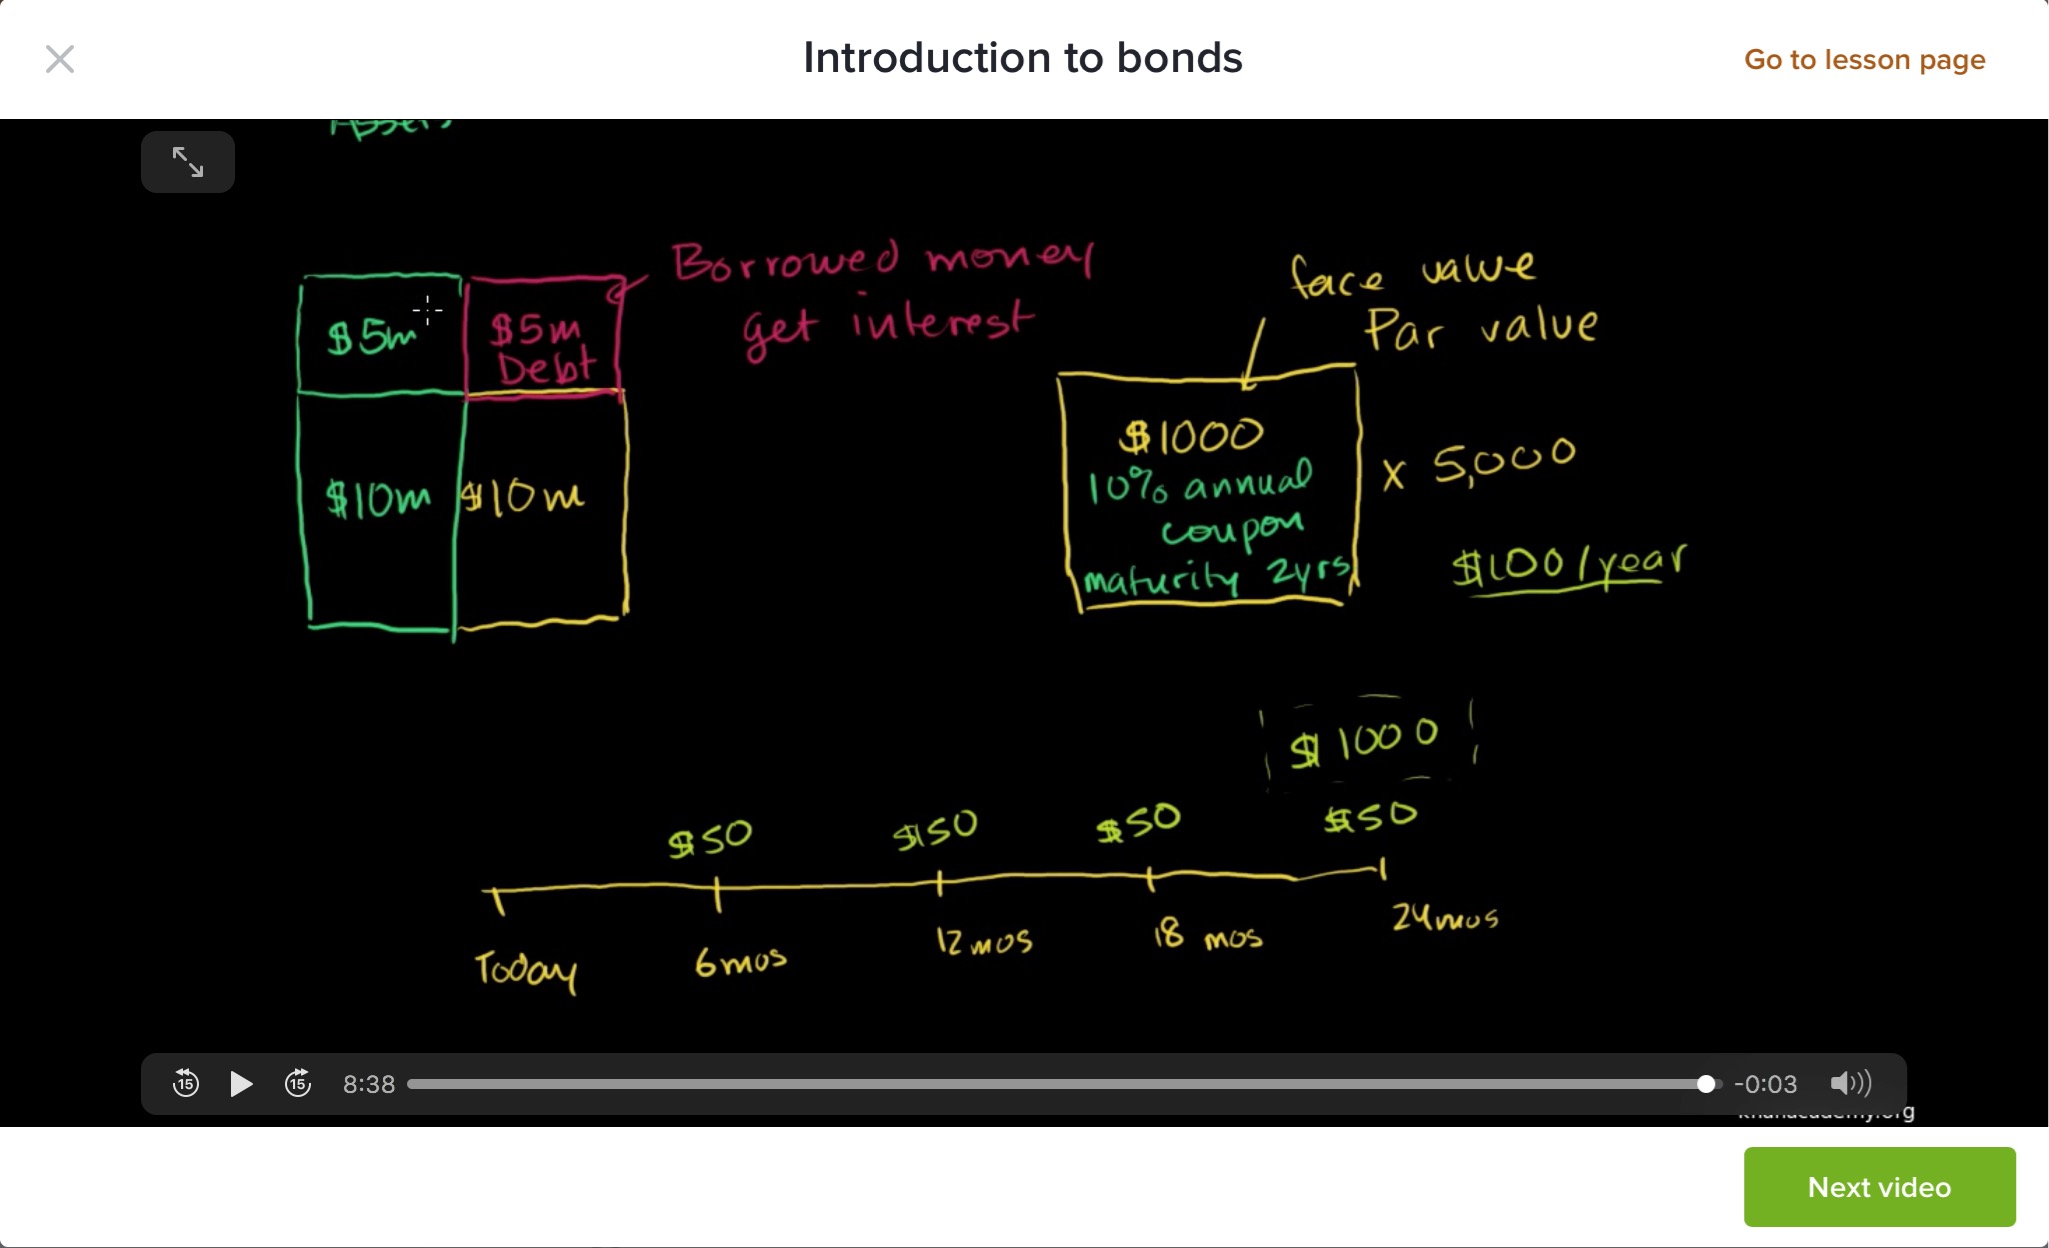 Introduction to bonds
Go to lesson page
Assets
Borrowed money
get interest
$5m
$5m
Debt
$10m
$10m
face value
Par value
$1000
10% annual
coupon
maturity 2yrs
x 5,000
$100/year
$1000
$50
$50
$50
$50
Today
6mos
12mos
18 mos
24mos
15
15
8:38
-0:03
khanacademy.org
Next video